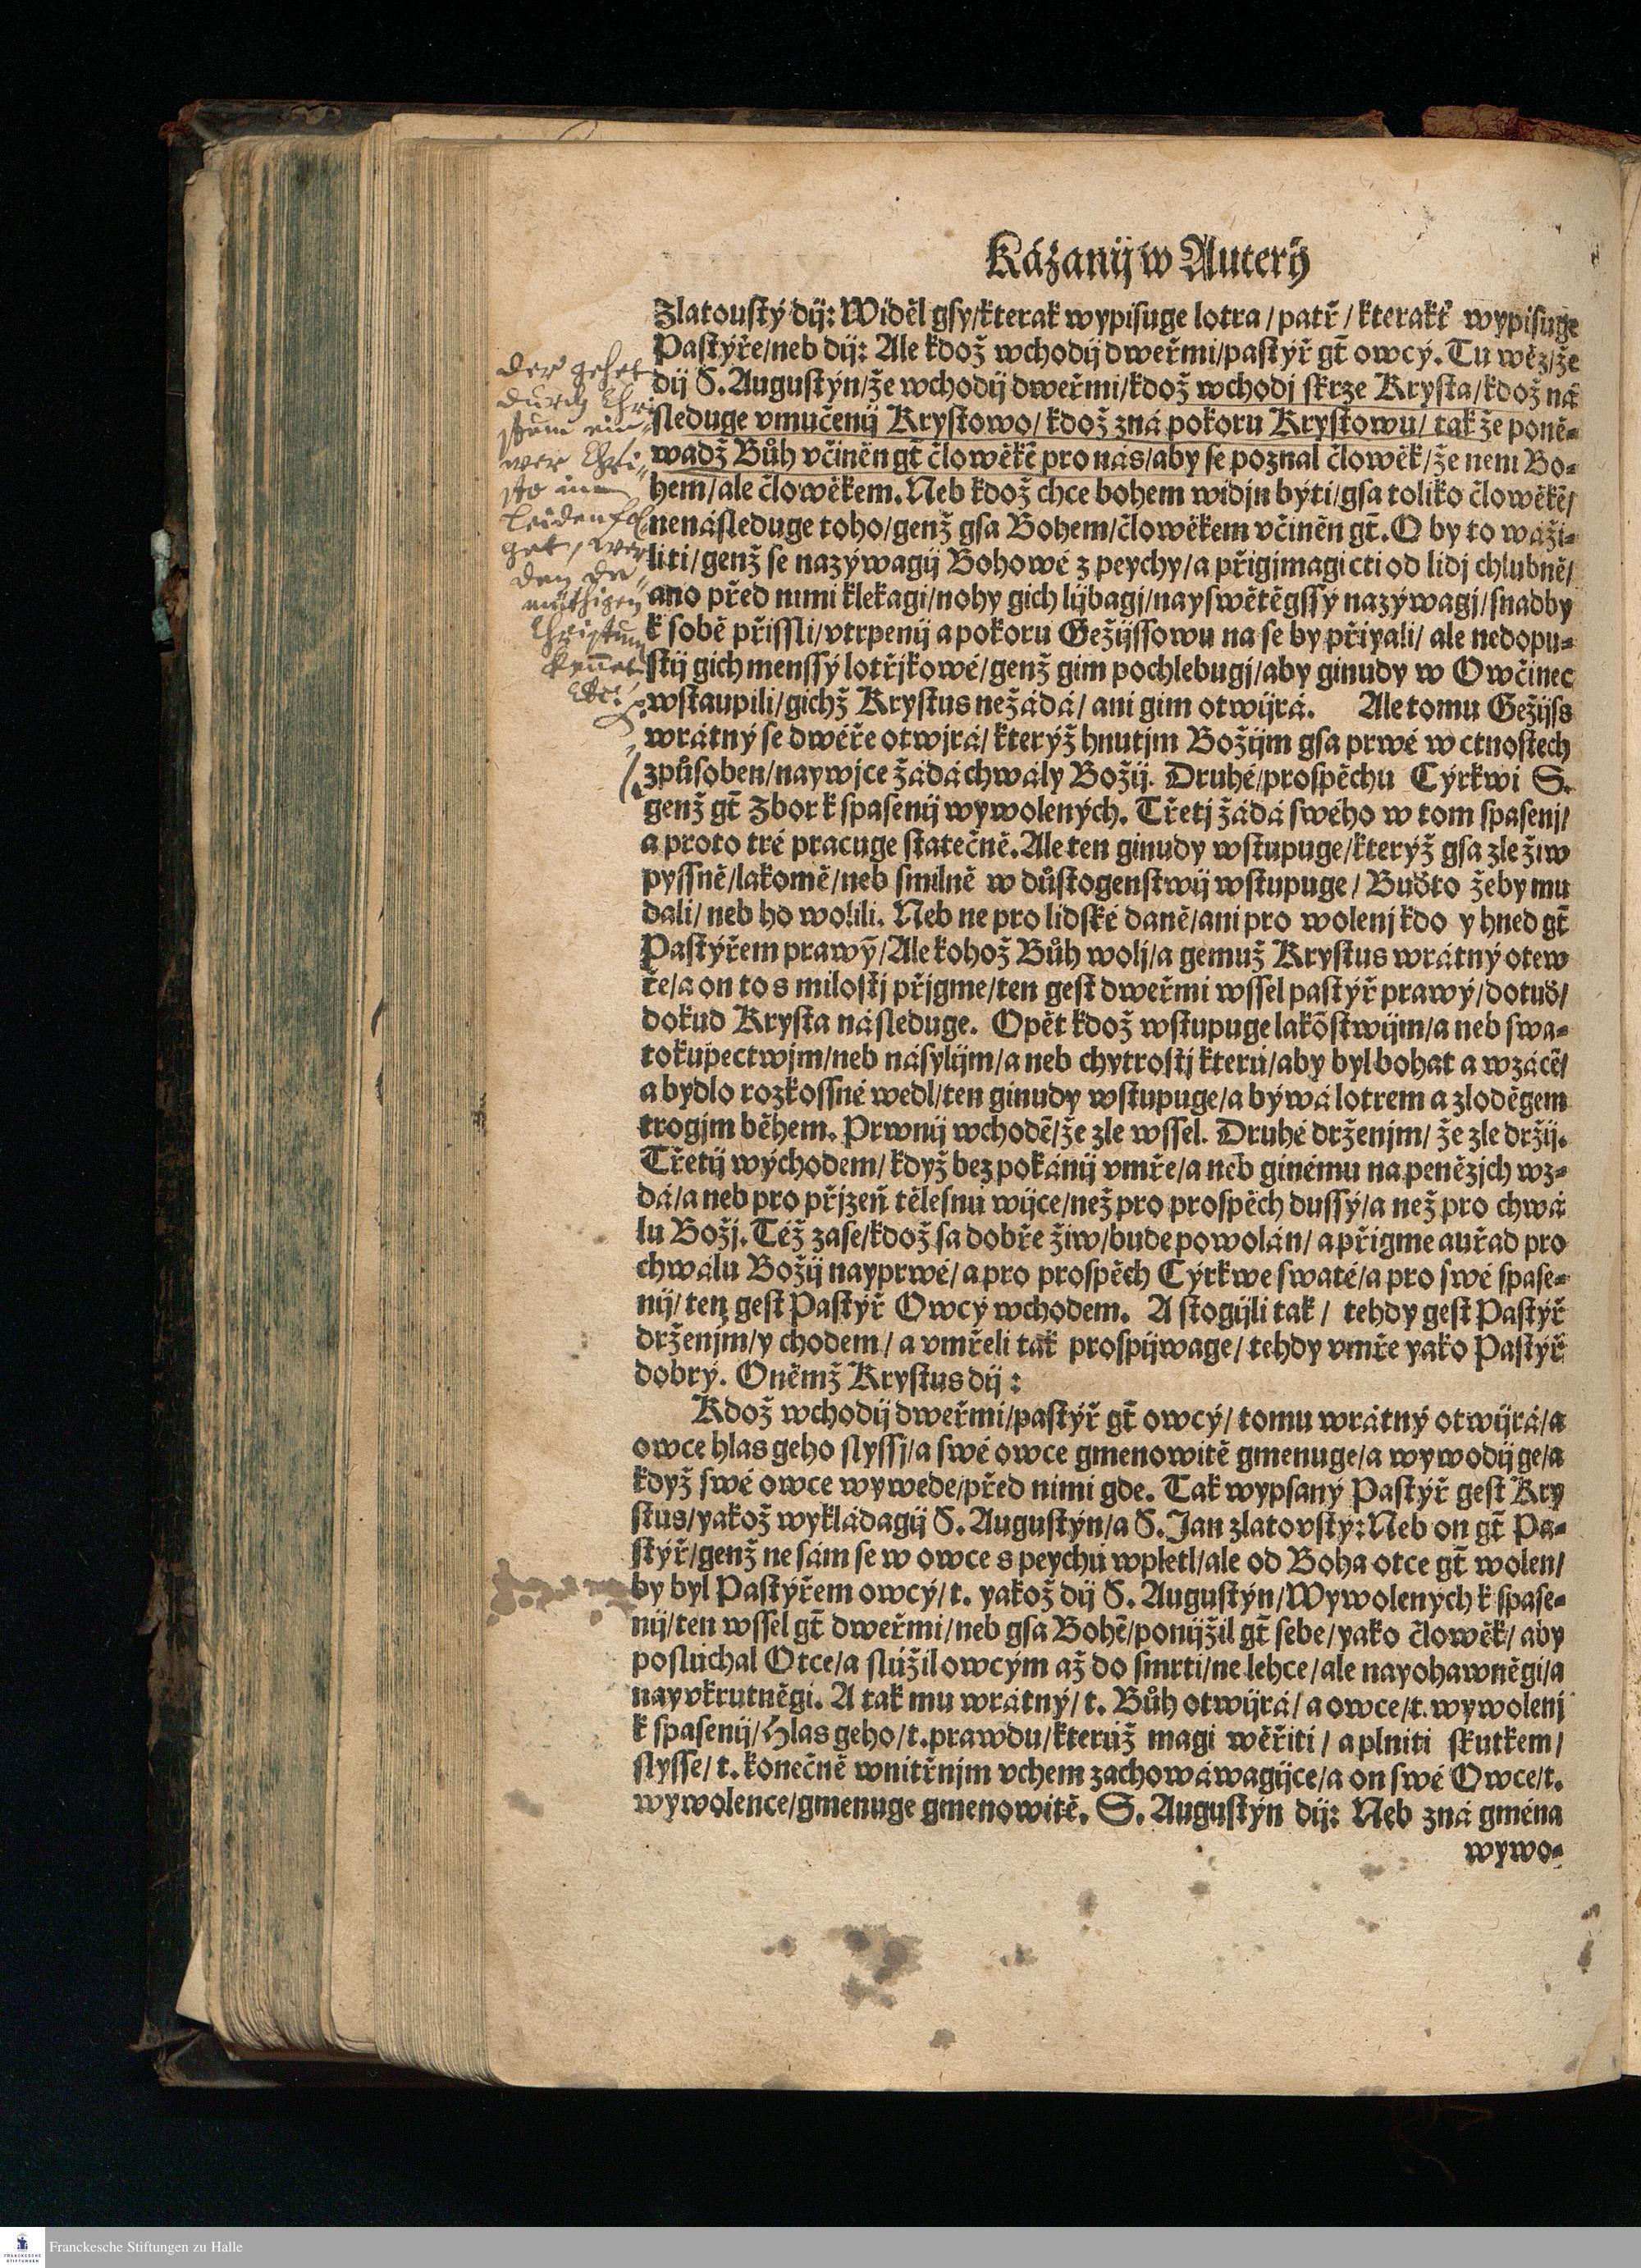 Kázanij w Auterý
Zlatoustý dij: Widěl gsy/kterak wypisuge lotra/patř/kterakť wypisuge
Pastýře/neb dij: Ale kdož wchodij dweřmi/pastýř gt̄ owcý. Tu wěz/že
dij S. Augustýn/že wchodij dweřmi/kdož wchodj skrze Krysta/kdož ná
sleduge vmučenij Krystowo/kdož zná pokoru Krystowu/takže poně-
wadž Bůh včiněn gt̄ člowěkē pro nás/aby se poznal člowěk/že nenî Bo-
hem/ale člowěkem. Neb kdož chce bohem widjn býti/gsa toliko člowěkē/
nenásleduge toho/genž gsa Bohem/člowěkem včiněn gt̄. O by to wáži-
liti/genž se nazýwagij Bohowé z peychy/a přigjmagi cti od lidj chlubně/
ano před nimi klekagi/nohy gich lijbagj/nayswětěgssý nazýwagj/snadby
k sobě přissli/vtrpenij a pokoru Gežijssowu na se by přiyali/ ale nedopu-
stij gich menssý lotřjkowé/genž gim pochlebugj/aby ginudy w Owčinec
wstaupili/gichž Krystus nežádá/ ani gim otwijrá. Ale tomu Gežijss
wrátný se dwéře otwjrá/kterýž hnutjm Božijm gsa prwé w ctnostech
způsoben/naywjce žádá chwály Božij. Druhé/prospěchu Cýrkwi S.
genž gt̄ Zbor k spasenij wywolených. Třetj žádá swého w tom spasenj/
a proto tré pracuge statečně. Ale ten ginudy wstupuge/kterýž gsa zle žiw
pyssně/lakomě/neb smilně w důstogenstwij wstupuge/ Buďto žeby mu
dali/neb ho wolili. Neb ne pro lidské daně/ani pro wolenj kdo y hned gt̄
Pastýřem prawȳ/Ale kohož Bůh wolj/a gemuž Krystus wrátný otew
ře/a on to s milostj přjgme/ten gest dweřmi wssel pastýř prawý/dotuď/
dokud Krysta následuge. Opět kdož wstupuge lakōstwijm/a neb swa-
tokupectwjm/neb násylijm/a neb chytrostj kterú/aby byl bohat a wzácē/
a bydlo rozkossné wedl/ten ginudy wstupuge/a býwá lotrem a zlodēgem
trogjm během. Prwnij wchodē/že zle wssel. Druhé drženjm/ že zle držij.
Třetij wýchodem/když bez pokánij vmře/a neb ginému na penězjch wz-
dá/a neb pro přjzeň tělesnú wijce/než pro prospěch dussý/a než pro chwá
lu Božj. Též zase/kdož sa dobře žiw/bude powolán/ a přigme auřad pro
chwálu Božij nayprwé/a pro prospěch Cýrkwe swaté/a pro swé spase-
nij/ten gest Pastýř Owcý wchodem. A stogijli tak/ tehdy gest Pastýř
drženjm/y chodem/ a vmřeli tak prospijwage/tehdy vmře yako Pastýř
dobrý. Oněmž Krystus dij:
Kdož wchodij dweřmi/pastýř gt̄ owcý/tomu wrátný otwijrá/a
owce hlas geho slyssj/a swé owce gmenowitě gmenuge/a wywodij ge/a
když swé owce wywede/před nimi gde. Tak wypsaný Pastýř gest Kry
stus/yakož wykládagij S. Augustýn/a S. Jan zlatovstý: Neb on gt̄ Pa-
stýř/genž ne sám se w owce s peychú wpletl/ale od Boha otce gt̄ wolen/
by byl Pastýřem owcý/t. yakož dij S. Augustýn/Wywolených k spase-
nij/ten wssel gt̄ dweřmi/neb gsa Bohē/ponijžil gt̄ sebe/yako člowěk/ aby
poslúchal Otce/a slúžil owcým až do smrti/ne lehce/ale nayohawněgi/a
nayvkrutněgi. A tak mu wrátný/t. Bůh otwijrá/a owce/t. wywolenj
k spasenij/Hlas geho/t. prawdu/kterúž magi wěřiti/a plniti skutkem/
slysse/t. konečně wnitřnjm vchem zachowáwagijce/a on swé Owce/t.
wywolence/gmenuge gmenowitě. S. Augustýn dij: Neb zná gména
wywo-
der gehet
durch Chri
stum ein
wer Chri-
sto im
Leiden fol
get, wer
den de-
müthigen
Christum
kennet
Franckesche Stiftungen zu Halle